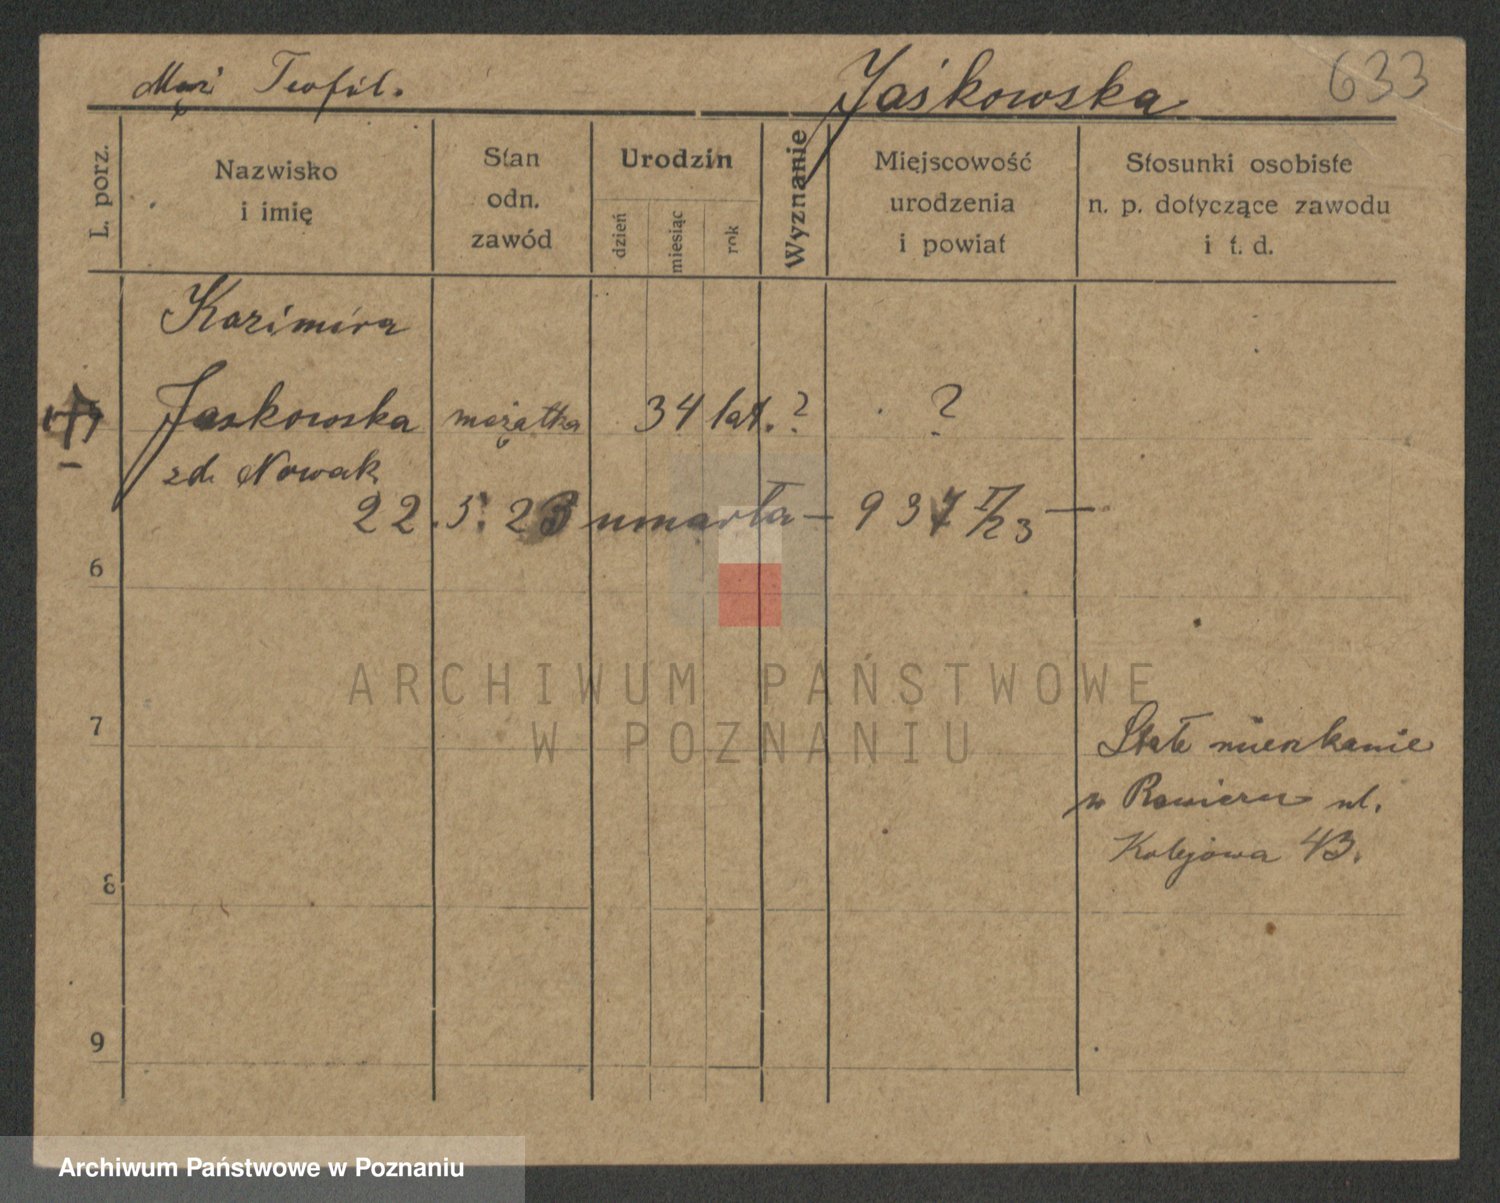 Mąż Teofil.
Jaśkowska
633
L. porz.
Nazwisko
i imię
Stan
odn.
zawód
Urodzin
dzień
miesiąc
rok
Wyznanie
Miejscowość
urodzenia
i powiat
Stosunki osobiste
n. p. dotyczące zawodu
i t. d.
Kazimira
Jaskowska mężatka 34 lat. ? ?
zd. Nowak
22. 5. 23 umarła – 937 II/23 –
6
7
Stałe mieszkanie
w Rawiczu ul.
Kolejowa 43.
8
9
ARCHIWUM PAŃSTWOWE
W POZNANIU
Archiwum Państwowe w Poznaniu